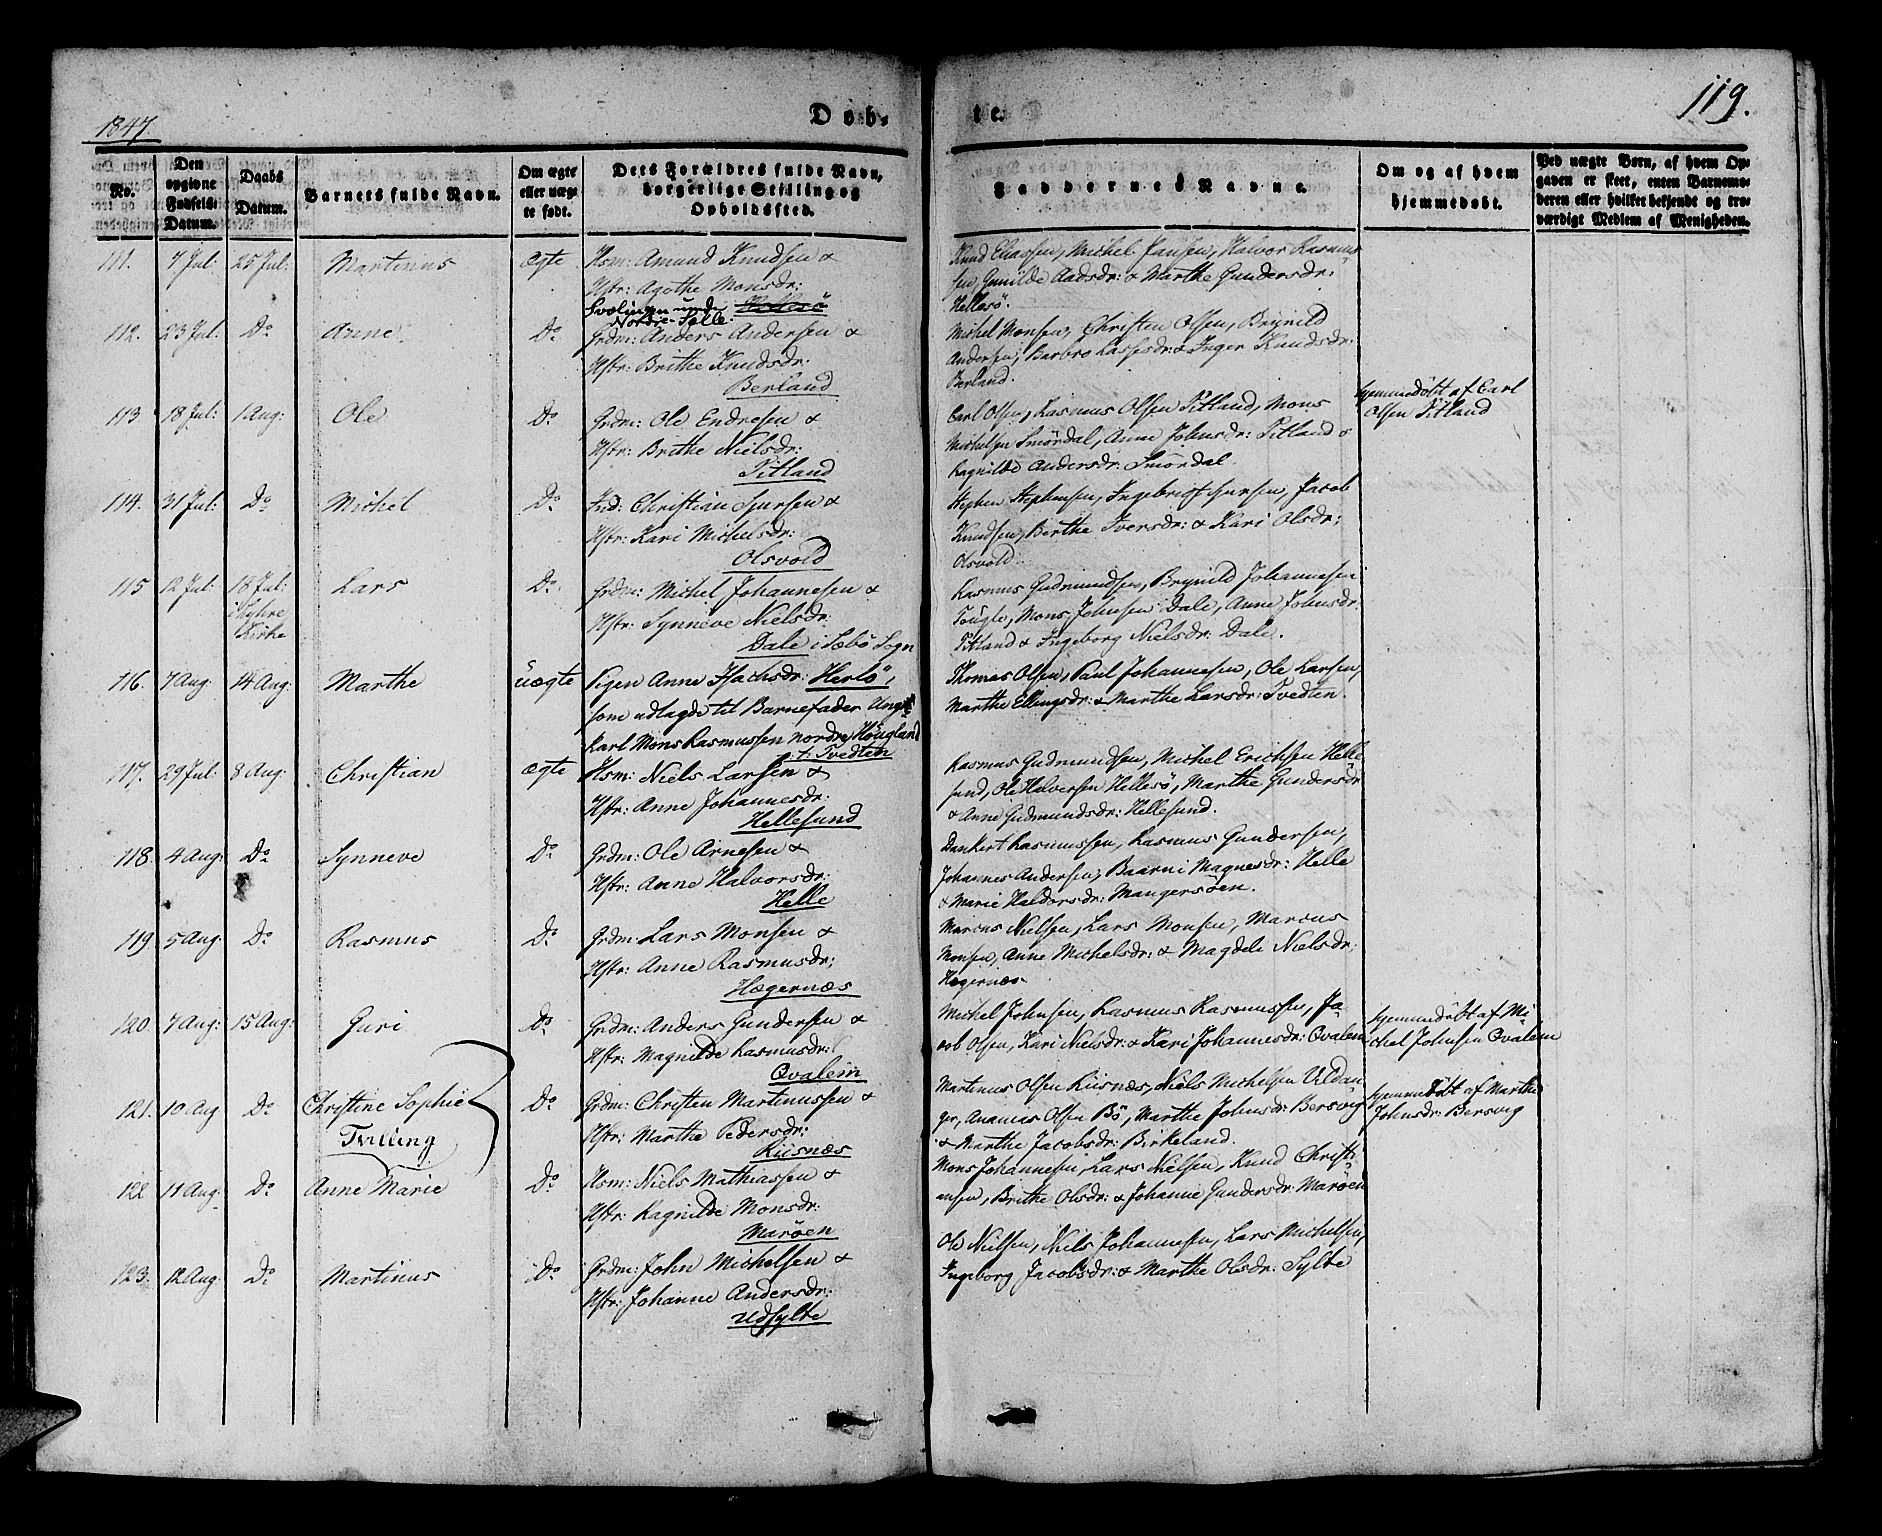 1847.
Døb-
te.
119.
No.
Den opgivne Fødsels-Datum.
Daabs Datum.
Barnets fulde Navn.
Om ægte eller uægte født.
Dets Forældres fulde Navn, borgerlige Stilling og Opholdssted.
Faddernes Navne.
Om og af hvem hjemmedøbt.
Ved uægte Børn, af hvem Opgaven er skeet, enten Barnemoderen eller hvilket bekjendt og troværdigt Medlem af Menigheden.
111. 7 Jul: 25 Jul: Martinus ægte Hsm: Amund Knudsen &
Hstr: Agathe Monsdr:
Svolingen under Hellesö
Nordre-Helle.
Knud Eliassen, Michel Hansen, Halvor Rasmus
sen, Gunilde Aadsdr: & Marthe Gundersdr:
Hellesö.
112. 23 Jul: Do Anne Do Grdm: Anders Andersen &
Hstr: Brithe Knudsdr:
Berland
Michel Monsen, Christen Olsen, Brynild
Andersen, Barbro Lassesdr: & Inger Knudsdr:
Berland.
113 18 Jul: 1 Aug: Ole Do Grdm: Ole Endresen &
Hstr: Brithe Nielsdr:
Titland
Carl Olsen, Rasmus Olsen Titland, Mons
Michelsen Smördal, Anne Johnsdr: Titland &
Ragnilde Andersdr: Smördal.
hjemmedöbt af Carl
Olsen Titland
114. 31 Jul: Do Michel Do Christian Sjursen &
Hstr: Kari Michelsdr:
Olsvold
Stephen Stephensen, Ingebrigt Jensen, Jacob
Knudsen, Berthe Iversdr: & Kari Olsdr:
Olsvold.
115 12 Jul: 18 Jul: i Kirke Lars Do Grdm: Michel Johannesen &
Hstr: Synneve Nielsdr:
Dale i Sæbö Sogn
Rasmus Gudmundsen, Brynild Johannesen
Mons Johnsen Dale, Anne Johnsdr:
Titland & Ingeborg Nielsdr: Dale.
116. 7 Aug: 14 Aug: Marthe uægte Pigen Anne Isachsdr: Herlö,
som udlagde til Barnefader Unge
karl Mons Rasmussen nordre Höugland
f. Tvedten
Thomas Olsen, Paul Johannesen, Ole Larsen,
Marthe Ellingsdr: & Marthe Larsdr: Tvedten.
117. 29 Jul: 8 Aug: Christian ægte Hsm: Niels Larsen &
Hstr: Anne Johannesdr:
Hellesund
Rasmus Gudmundsen, Michel Erichsen Helle
sund, Ole Halversen Hellesö, Marthe Gundersdr
& Anne Gudmundsdr: Hellesund.
118. 4 Aug: Do Synneve Do Grdm: Ole Arnesen &
Hstr: Anne Halvorsdr:
Helle
Dankert Rasmussen, Rasmus Gundersen,
Johannes Andersen, Baarni Magnesdr: Helle
& Marie Haldorsdr: Mangersöen.
119 5 Aug: Do Rasmus Do Grdm: Lars Monsen &
Hstr: Anne Rasmusdr:
Hægernæs
Marcus Nielsen, Lars Monsen, Marcus
Monsen, Anne Michelsdr: & Magdele Nielsdr:
Hægernæs
120 7 Aug: 15 Aug: Guri Do Grdm: Anders Gundersen &
Hstr: Magnilde Rasmusdr:
Qvalem
Michel Johnsen, Rasmus Rasmussen, Ja-
cob Olsen, Kari Nielsdr: & Kari Johannesdr: Qvalem
hjemmedöbt af Mi-
chel Johnsen Qvalem
121. 10 Aug Do Christine Sophie Do Grdm: Christen Martinussen &
Tvilling
Hstr: Marthe Pedersdr:
Riisnæs
Martinus Olsen Riisnæs, Niels Michelsen Uldan
ger, Ananias Olsen Bö, Marthe Johnsdr: Bersvig
& Marthe Jacobsdr: Birkeland.
hjemmedöbt af Marthe
Johnsdr: Bersvig
122 11 Aug: Do Anne Marie Do Hsm: Niels Mathiassen &
Hstr: Ragnilde Monsdr:
Maröen
Mons Johannesen, Lars Nielsen, Knud Christi-
ansen, Brithe Olsdr: & Johanne Gundersdr: Maröen
123. 12 Aug: Do Martinus Do Grdm: John Michelsen &
Hstr: Johanne Andersdr:
Udsylte
Ole Nielsen, Niels Johannesen, Lars Michelsen,
Ingeborg Jacobsdr: & Marthe Olsdr: Sylte